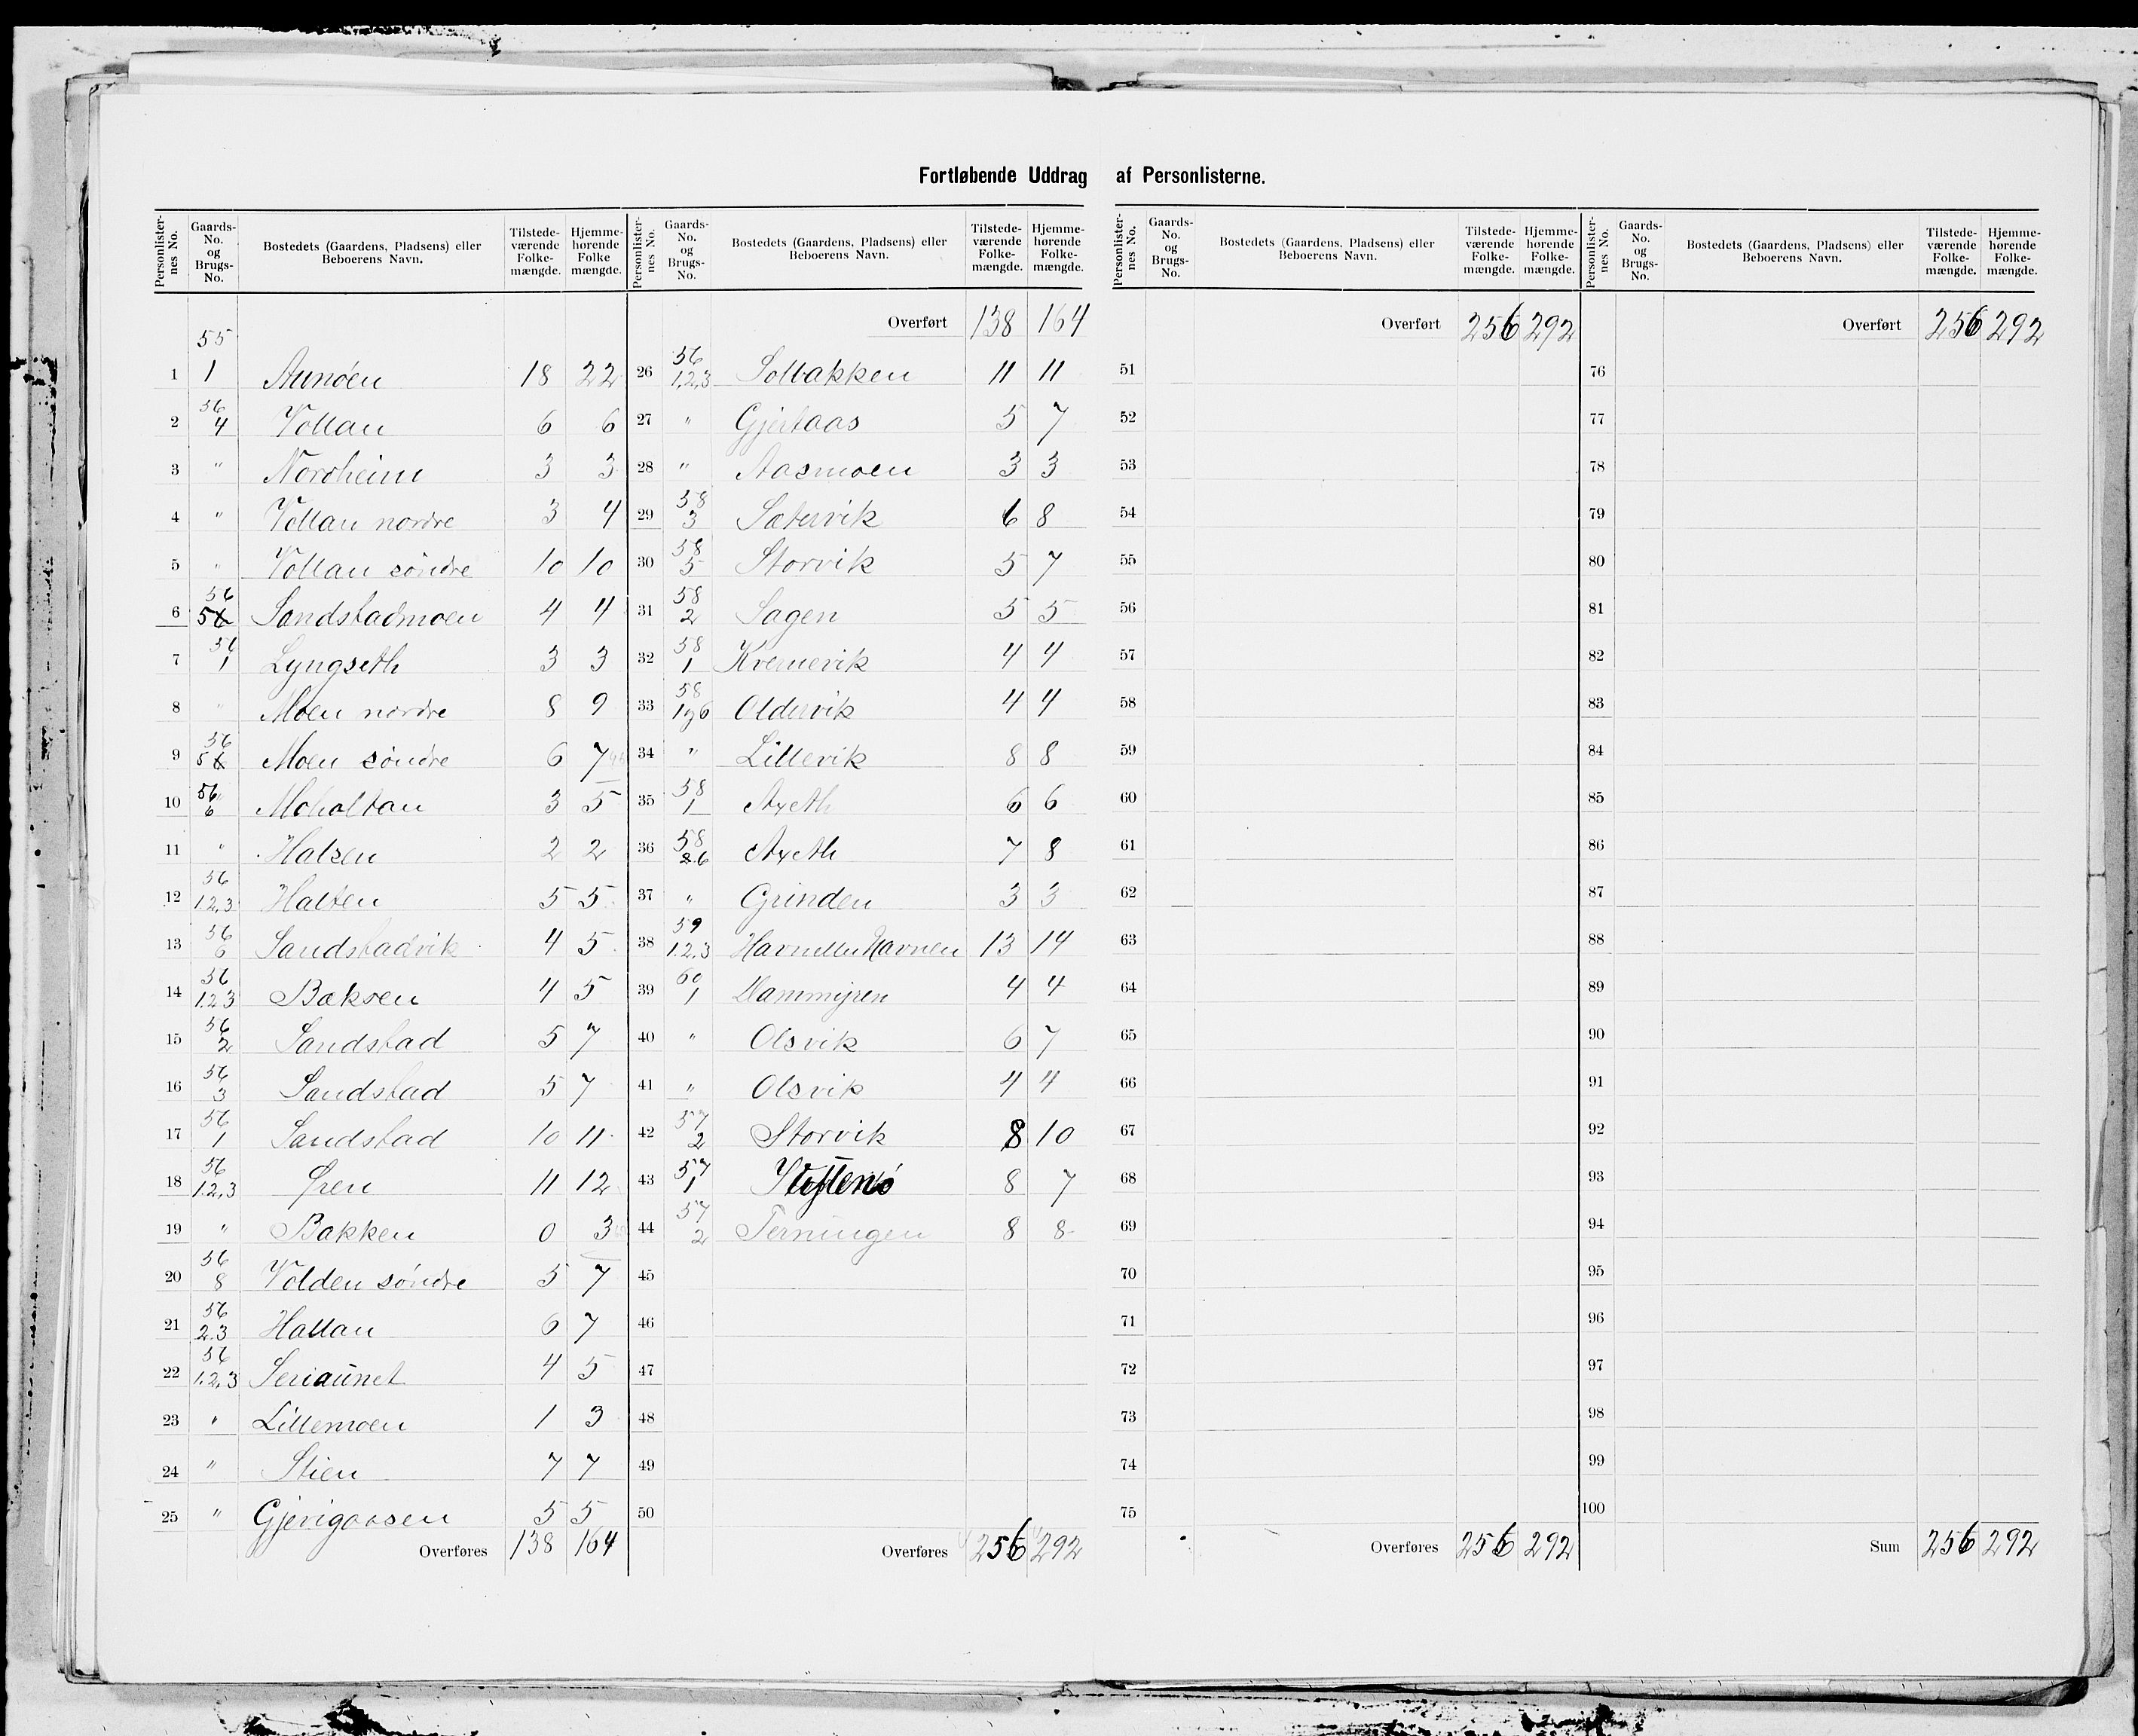 Fortløbende Uddrag af Personlisterne.
Personlister-nes No. Gaards-No. og Brugs-No. Bostedets (Gaardens, Pladsens) eller Beboerens Navn. Tilstede-værende Folke-mængde. Hjemme-hørende Folke mængde.
55
1 1 Aunøen 18 22
2 56 4 Vollan 6 6
3 " Nordheim 3 3
4 " Vollan nordre 3 4
5 " Vollan søndre 10 10
6 56 5 Sandstadmoen 4 4
7 56 1 Lyngseth 3 3
8 " Moen nordre 8 9
9 56 5 Moen søndre 6 7
10 56 6 Moholtan 3 5
11 " Halsen 2 2
12 56 1.2.3 Halten 5 5
13 56 6 Sandstadvik 4 5
14 56 1.2.3 Baksen 4 5
15 56 2 Sandstad 5 7
16 56 3 Sandstad 5 7
17 56 1 Sandstad 10 11
18 56 1.2.3 Øren 11 12
19 " Bakken 0 3
20 56 8 Volden søndre 5 7
21 56 2.3 Hallan 6 7
22 56 1.2.3 Seriaunet 4 5
23 " Lillemoen 1 3
24 " Stien 7 7
25 " Gjerigaasen 5 5
Overføres 138 164
Personlister-nes No. Gaards-No. og Brugs-No. Bostedets (Gaardens, Pladsens) eller Beboerens Navn. Tilstede-værende Folke-mængde. Hjemme-hørende Folke-mængde.
Overført 138 164
26 56 1.2.3 Solbakken 11 11
27 " Gjertaas 5 7
28 " Aasmoen 3 3
29 58 3 Sætervik 6 8
30 58 5 Storvik 5 7
31 58 2 Sagen 5 5
32 58 1 Kvernevik 4 4
33 58 1 og 6 Oldervik 4 4
34 " Lillevik 8 8
35 58 1 Axeth 6 6
36 58 6 Axeth 7 8
37 " Grinden 3 3
38 59 1.2.3 Havnen 13 14
39 60 1 Hammyren 4 4
40 " Olsvik 6 7
41 " Olsvik 4 4
42 57 2 Storvik 8 10
43 57 1 8 7
44 57 2 Terningen 8 8
45
46
47
48
49
50
Overføres 256 292
Personlister-nes No. Gaards-No. og Brugs-No. Bostedets (Gaardens, Pladsens) eller Beboerens Navn. Tilstede-værende Folke-mængde. Hjemme-hørende Folke-mængde.
Overført 256 292
51
52
53
54
55
56
57
58
59
60
61
62
63
64
65
66
67
68
69
70
71
72
73
74
75
Overføres 256 292
Personlister-nes No. Gaards-No. og Brugs-No. Bostedets (Gaardens, Pladsens) eller Beboerens Navn. Tilstede-værende Folke-mængde. Hjemme-hørende Folke-mængde.
Overført 256 292
76
77
78
79
80
81
82
83
84
85
86
87
88
89
90
91
92
93
94
95
96
97
98
99
100
Sum 256 292